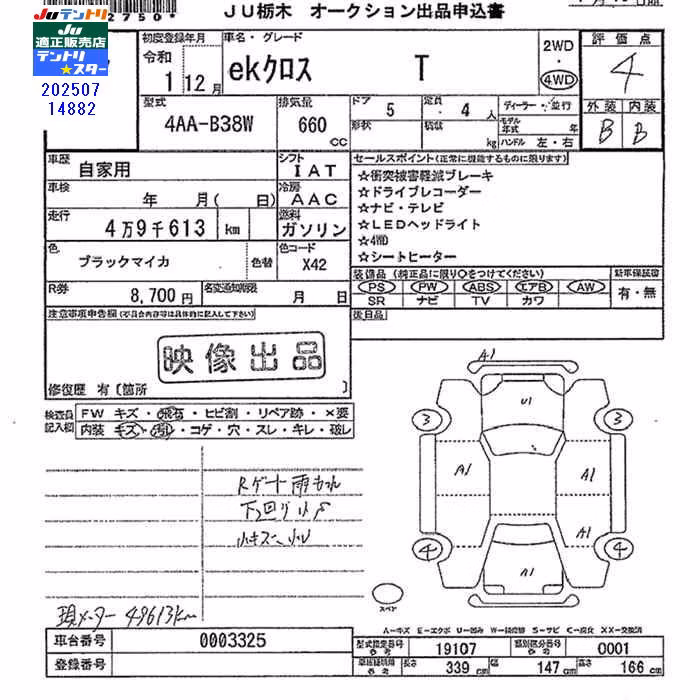 2750*
JU栃木 オークション出品申込書
JUテントリ
JU
適正販売店
テントリ
★スター
202507
14882
初度登録年月
令和
1 12月
車名・グレード
ekクロス T
2WD
・
4WD
評価点
4
外装 内装
B B
型式
4AA-B38W
排気量
660
CC
ドア
5
定員
4人
形状
積載
kg
ディーラー・並行
モデル年式 年
ハンドル 左・右
車歴
自家用
シフト
IAT
車検
年 月( 日)
冷房
AAC
走行
4万9千613 km
燃料
ガソリン
色
ブラックマイカ
色替
色コード
X42
R券
8,700円
名変通知期限
月 日
セールスポイント(正常に機能するものに限ります)
☆衝突被害軽減ブレーキ
☆ドライブレコーダー
☆ナビ・テレビ
☆LEDヘッドライト
☆4WD
☆シートヒーター
装備品(純正品に限り○をつけてください)
PS PW ABS エアB AW
SR ナビ TV カワ
新車保証書
有・無
後日品
注意事項申告欄(不具合内容等は具体的に記入して下さい)
映像出品
修復歴 有〔箇所 〕
検査員
記入欄
FW キズ・飛石・ヒビ割・リペア跡・×要
内装 キズ・汚れ・コゲ・穴・スレ・キレ・破レ
Rゲート雨もれ
下回りサビ
小キズ小凹
現メーター 49613km
A1
U1
3 3
A1 A1
A1
4 4
A1
スペア
A―キズ E―エクボ U―凹み W―補修跡 S―サビ C―腐食 XX―交換済
車台番号
0003325
登録番号
型式指定番号
19107
類別区分番号
0001
長さ 339cm 幅 147cm 高さ 166cm